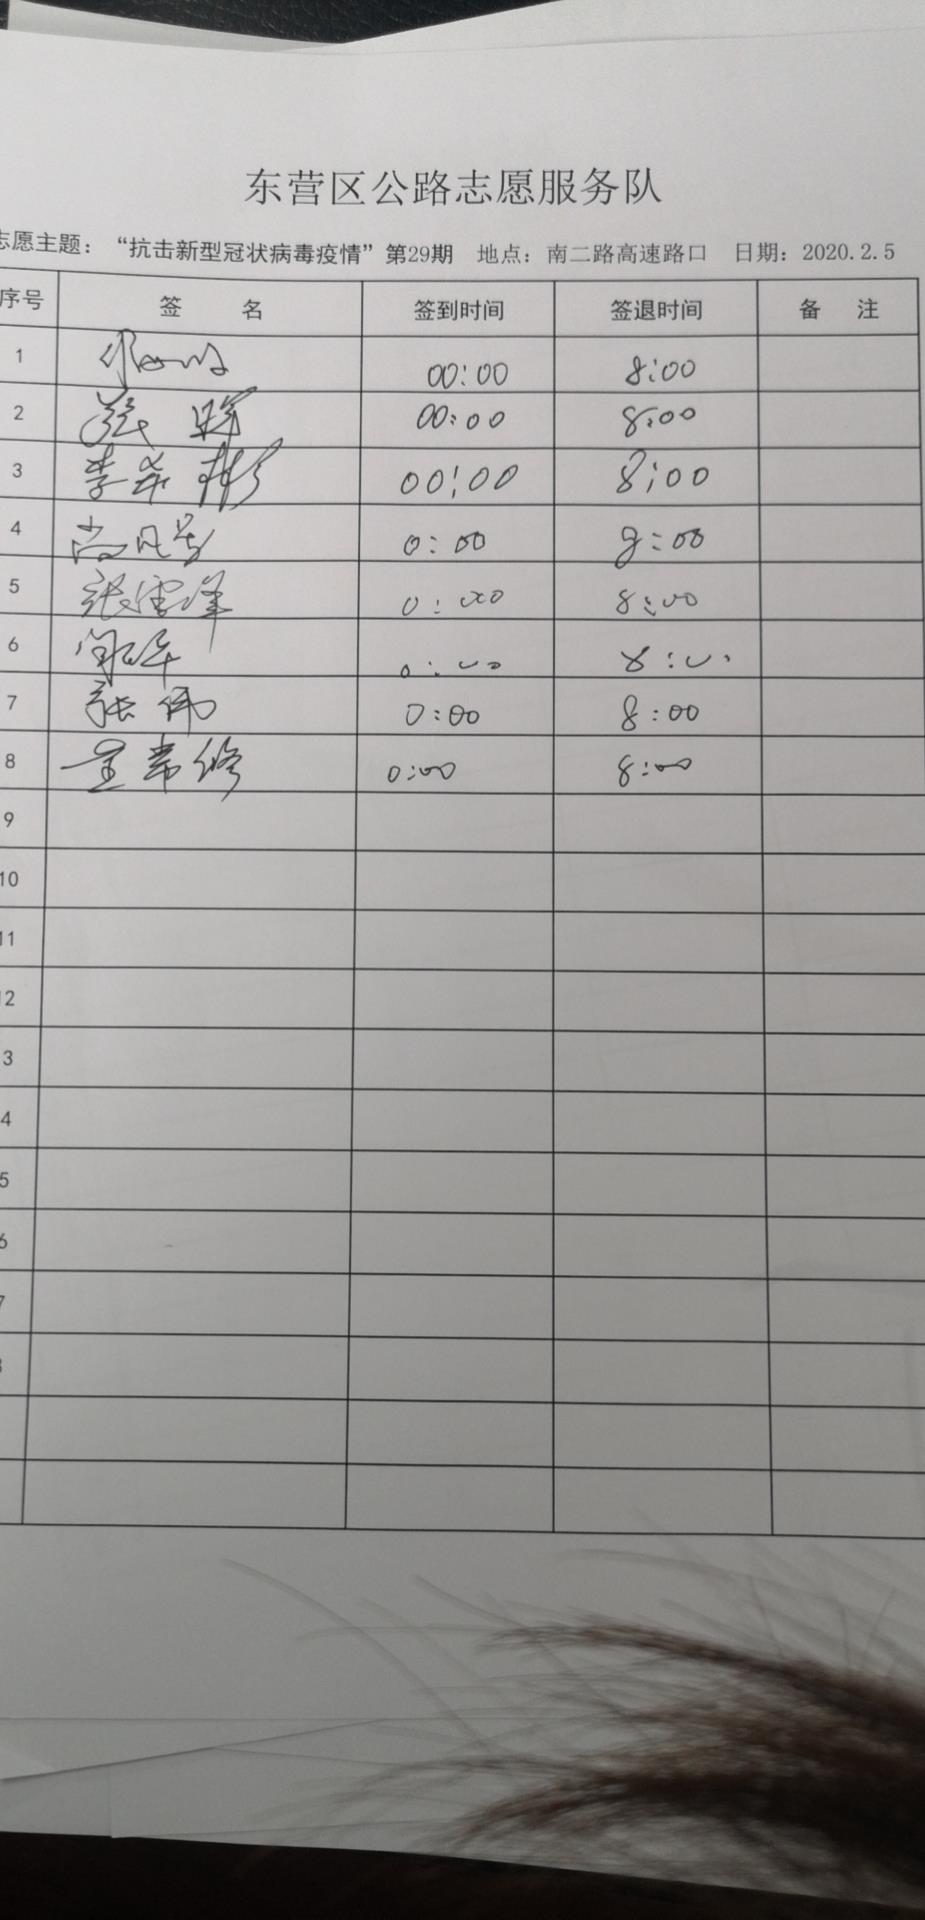 东营区公路志愿服务队
志愿主题：“抗击新型冠状病毒疫情”第29期 地点：南二路高速路口 日期：2020.2.5
序号 签 名 签到时间 签退时间 备 注
1 00:00 8:00
2 张 00:00 8:00
3 李希彬 00:00 8:00
4 0:00 8:00
5 张雪峰 0:00 8:00
6 0:00 8:00
7 张伟 0:00 8:00
8 王常修 0:00 8:00
9
10
11
12
3
4
5
6
7